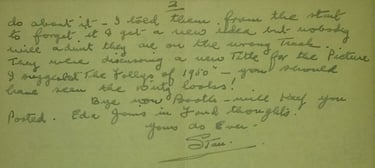 2
do about it - I told them from the start
to forget it & get a new idea but nobody
will admit they are on the wrong Track.
They were discussing a new Title for the Picture
I suggested The Follys of 1950 - you should
have seen the Dirty looks!
Bye now Booth - will Keep you
Posted. Eda Joins in Fond thoughts.
Yours as Ever -
Stan.